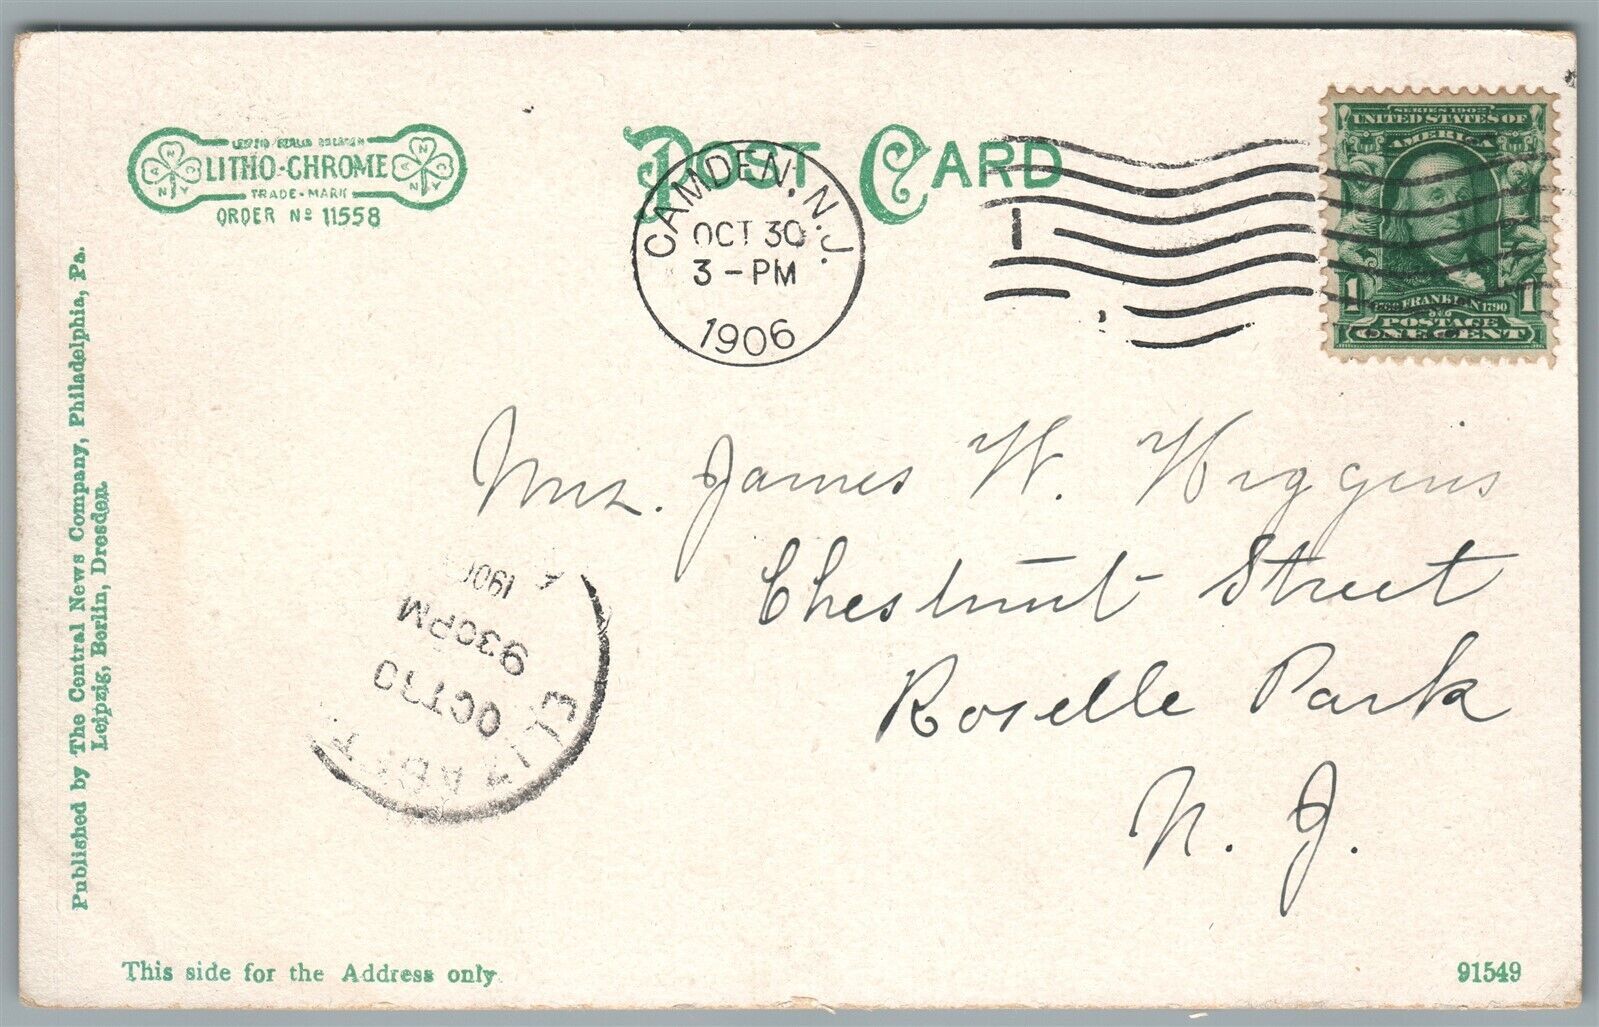 LEIPZIG BERLIN DRESDEN
LITHO-CHROME
TRADE-MARK
ORDER Nº 11558
POST CARD
CAMDEN, N.J.
OCT 30
3-PM
1906
1
SERIES 1902
UNITED STATES OF
AMERICA
1 1
FRANKLIN 1790
POSTAGE
ONE CENT
Mrs. James W. Wiggins
Chestnut Street
Roselle Park
N. J.
ELIZABET
OCT 30
930PM
190
Published by The Central News Company, Philadelphia, Pa.
Leipzig, Berlin, Dresden.
This side for the Address only
91549